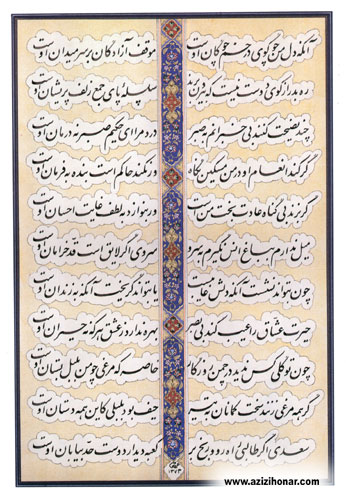 آنکه دل من چو گوی در خم چوگان اوست موقف آزادگان بر سر میدان اوست
ره بدر از کوی دوست نیست که بیرون برند سلسله پای جمع زلف پریشان اوست
چند نصیحت کنند بی خبرانم به صبر درد مرا ای حکیم صبر نه درمان اوست
گر کند انعام او در من مسکین نگاه ور نکند حاکم است بنده به فرمان اوست
گر بزند بی گناه عادت بخت من است ور بنوازد به لطف غایت احسان اوست
میل ندارم به باغ انس نگیرم به سرو سروی اگر لایق است قد خرامان اوست
چون بتواند نشست آنکه دلش غایب است یا بتواند گریخت آنکه به زندان اوست
حیرت عشاق را عیب کند بی بصر بهره ندارد ز عشق هر که نه حیران اوست
چون تو گلی کس ندید در چمن روزگار خاصه که مرغی چو من بلبل بستان اوست
گر همه مرغی زنند سخت کمانان به تیر حیف بود بلبلی کاین همه دستان اوست
سعدی اگر طالبی راه رو و رنج بر کعبه دیدار دوست حد بیابان اوست
۱۳۷۳
www.azizihonar.com